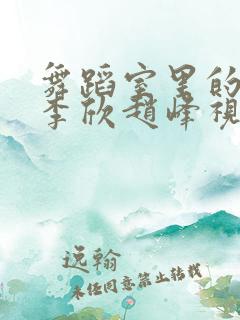 舞蹈室里的
李欣赵峰视
逸翰
未经同意禁止转载